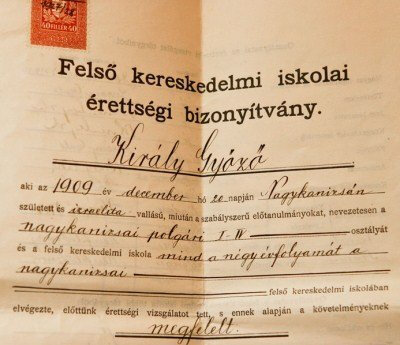 40 FILLÉR 40
Felső kereskedelmi iskolai
érettségi bizonyítvány.
Király Győző
aki az 1909 év december hó 20 napján Nagykanizsán
született és izraelita vallású, miután a szabályszerű előtanulmányokat, nevezetesen a
nagykanizsai polgári I-IV osztályát
és a felső kereskedelmi iskola mind a négy évfolyamát a
nagykanizsai
felső kereskedelmi iskolában
elvégezte, előttünk érettségi vizsgálatot tett, s ennek alapján a követelményeknek
megfelelt.